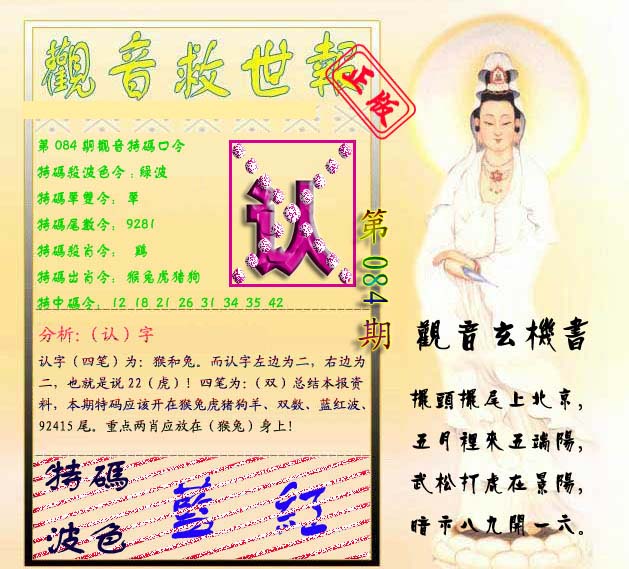 觀音救世報
正版
第084期觀音特碼口令
特碼殺波色令:綠波
特碼單雙令: 單
特碼尾數令: 9281
特碼殺肖令: 鷄
特碼出肖令: 猴兔虎猪狗
特中碼令: 12 18 21 26 31 34 35 42
认
第084期
分析:（认）字
认字（四笔）为：猴和兔。而认字左边为二，右边为
二，也就是说22（虎）！四笔为：（双）总结本报资
料，本期特码应该开在猴兔虎猪狗羊、双数、蓝红波、
92415尾。重点两肖应放在（猴兔）身上！
特碼
波色
藍 紅
觀音玄機書
擺頭擺尾上北京，
五月裡來五端陽，
武松打虎在景陽，
暗示八九開一六。